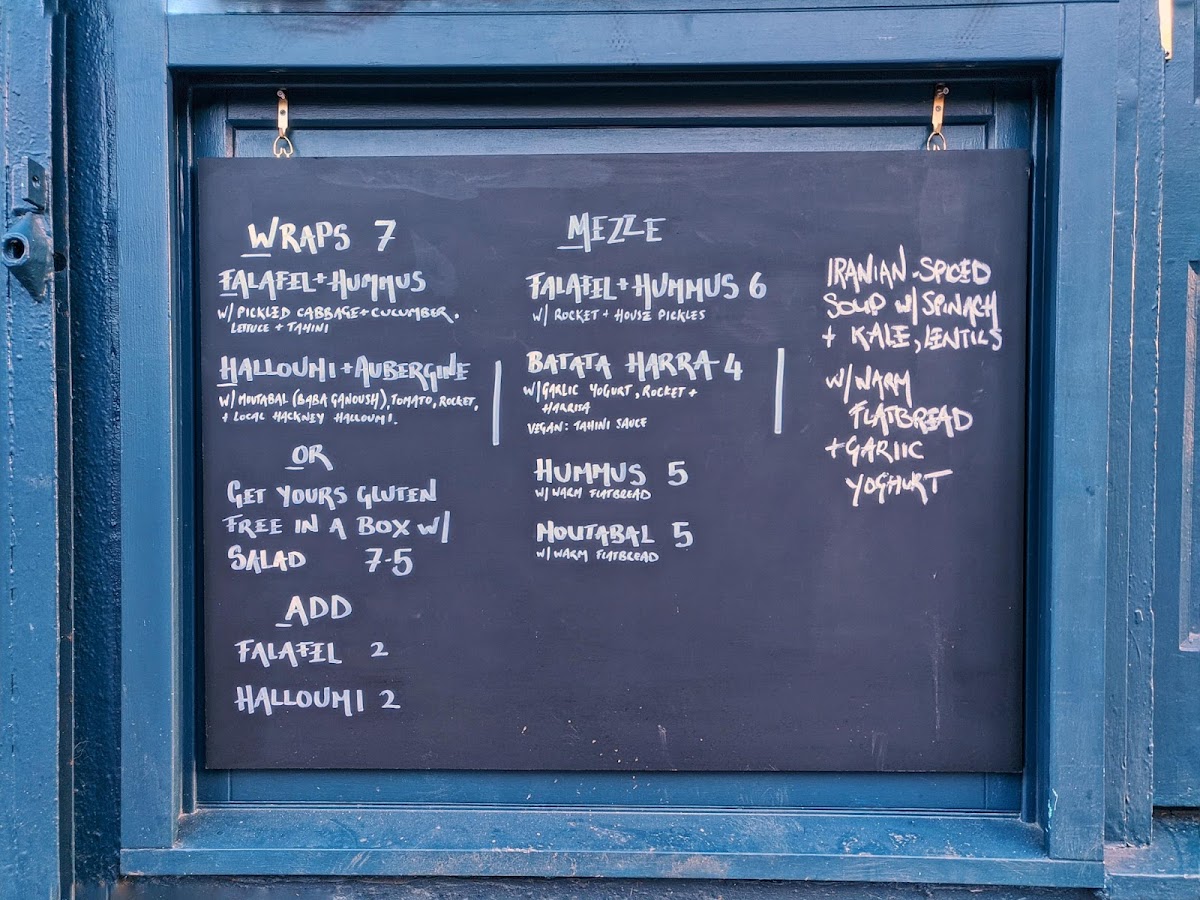 WRAPS 7
FALAFEL + HUMMUS
W/ PICKLED CABBAGE + CUCUMBER.
LETTUCE + TAHINI
HALLOUMI + AUBERGINE
W/ MOUTABAL (BABA GANOUSH), TOMATO, ROCKET,
+ LOCAL HACKNEY HALLOUMI.
OR
GET YOURS GLUTEN
FREE IN A BOX W/
SALAD 7-5
ADD
FALAFEL 2
HALLOUMI 2
MEZZE
FALAFEL + HUMMUS 6
W/ ROCKET + HOUSE PICKLES
BATATA HARRA 4
W/ GARLIC YOGURT, ROCKET +
HARRISA
VEGAN: TAHINI SAUCE
HUMMUS 5
W/ WARM FLATBREAD
MOUTABAL 5
W/ WARM FLATBREAD
IRANIAN-SPICED
SOUP W/ SPINACH
+ KALE, LENTILS
W/ WARM
FLATBREAD
+ GARLIC
YOGHURT